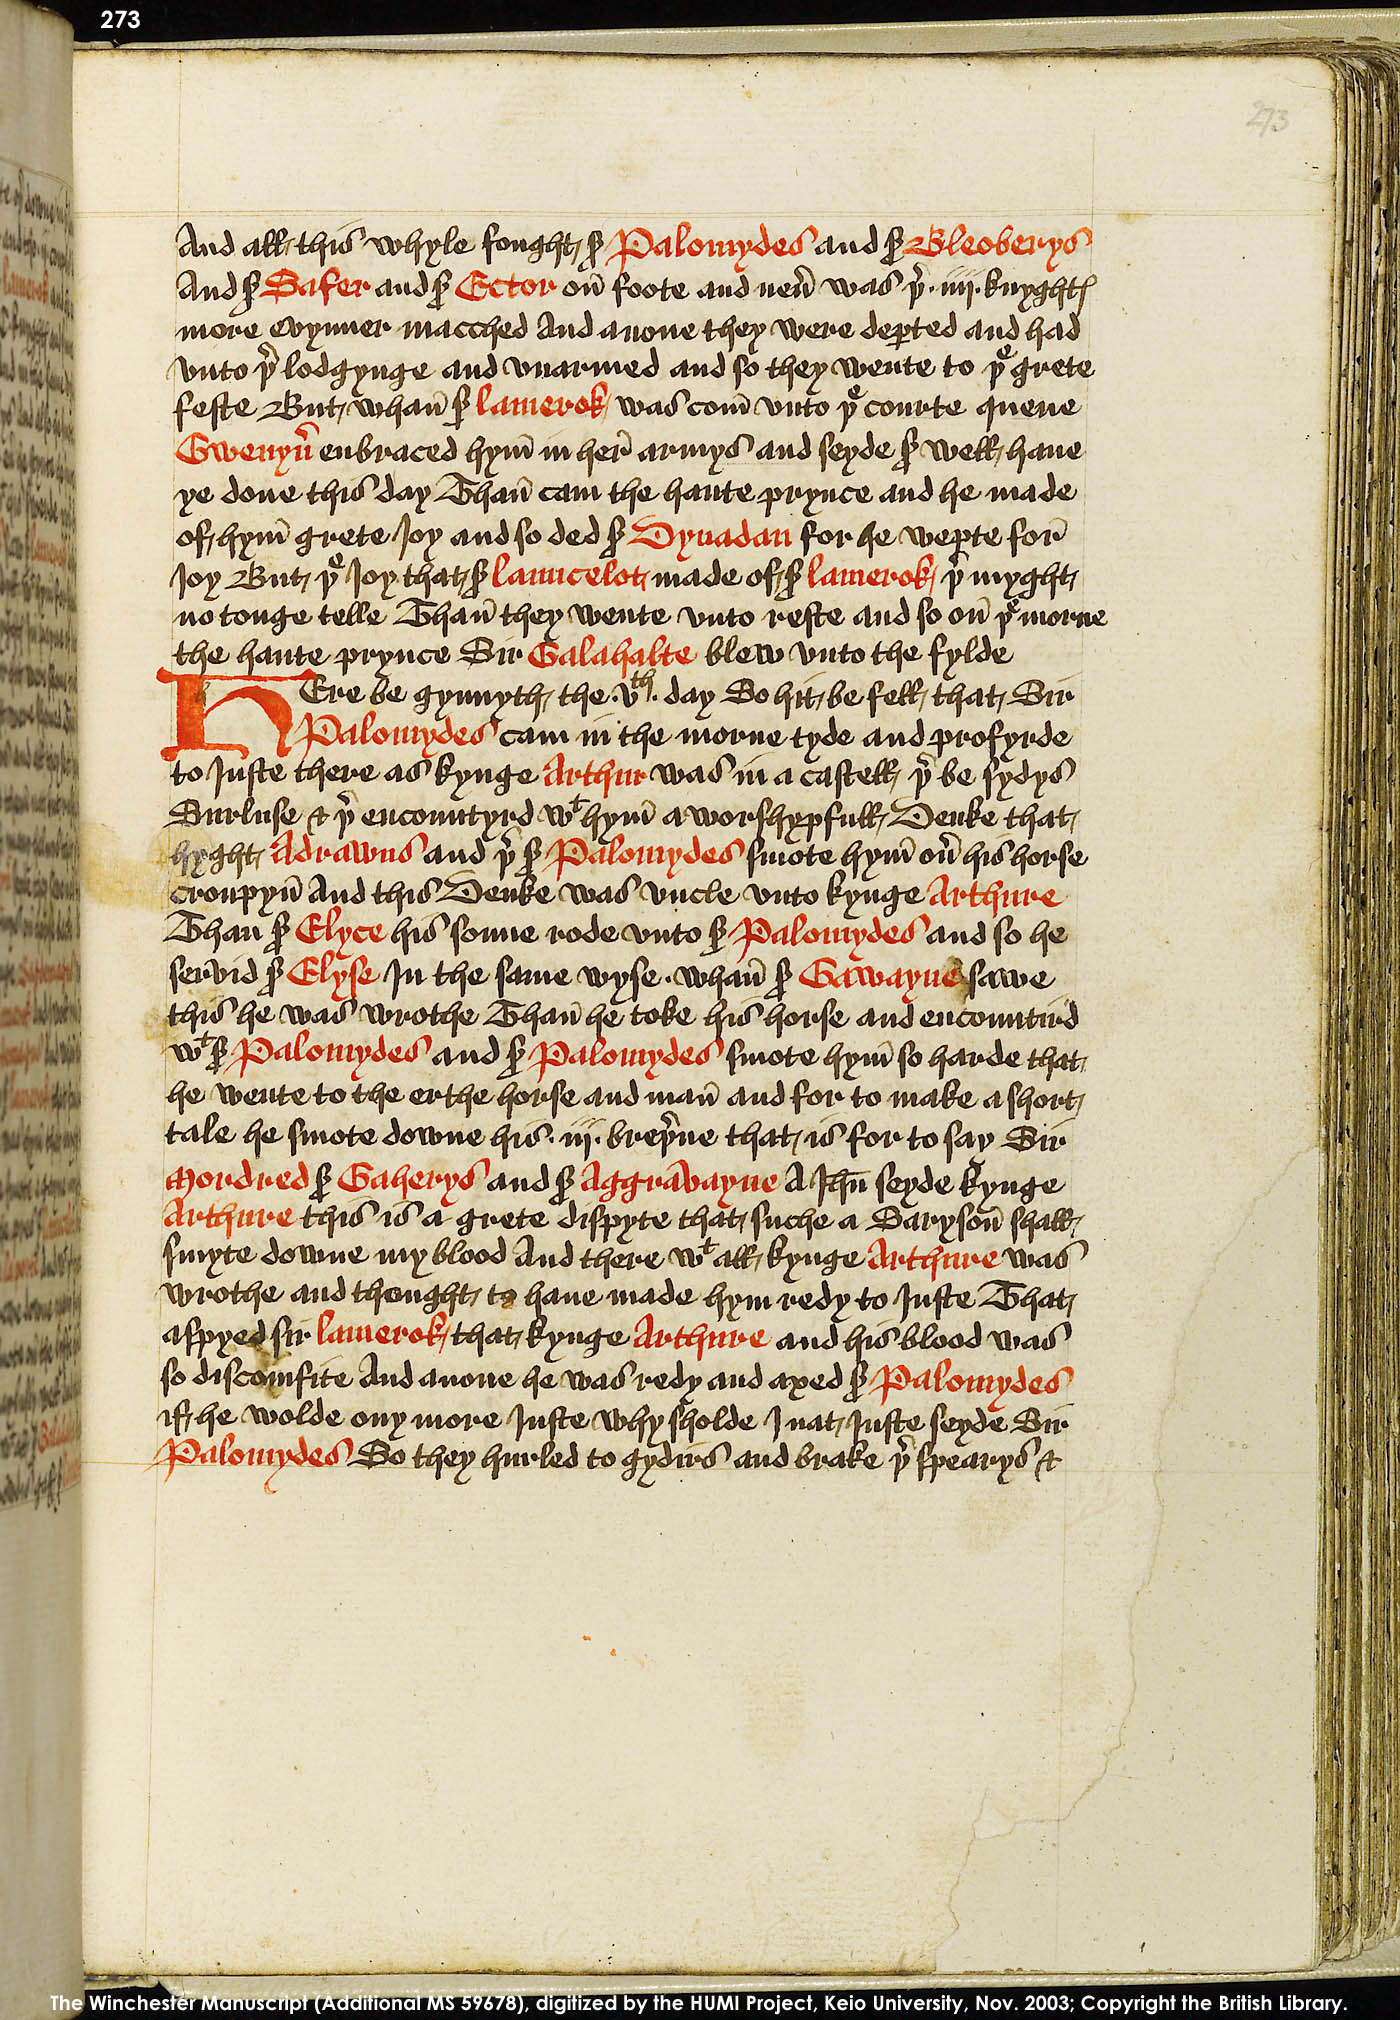 273
273
And all this whyle fought sr Palomydes and sr Bleoberys
And sr Safer and sr Ector on̄ foote and neu͛ was þ͛ .iiij. knyghtꝭ
more evynner macched And anone they were deꝑted and had
vnto þ͛ lodgynge and vnarmed and so they wente to þe grete
feste But whan̄ sr lamerok was com̄ vnto þe courte quene
Gwenyu͛ enbraced hym̄ in her̄ armys and seyde sr well haue
ye done this day Than̄ cam the haute prynce and he made
of hym̄ grete Joy and so ded sr Dynadan for he wepte for̄
Joy But þe Joy that sr launcelot made of sr lamerok þ͛ myght
no tonge telle Than̄ they wente vnto reste and so on̄ þe morne
the haute prynce Sir Galahalte blew vnto the fylde
HEre be gynnyth the .vth. day So hit be fell that Sir
Palomydes cam in the morne tyde and profyrde
to Juste there as kynge Arthur was in a castell þ͛ be sydys
Surluse & þ͛ encountyrd wt hym̄ a worshypfull Deuke that
hyght Adrawns and þ͛ sr Palomydes smote hym̄ ou͛ his horse
croupyn̄ And this Deuke was vncle vnto kynge Arthure
Than sr Elyce his sonne rode vnto sr Palomydes and so he
servid sr Elyse In the same wyse . whan̄ sr Gawayne sawe
this he was wrothe Than̄ he toke his horse and encountird
wt sr Palomydes and sr Palomydes smote hym̄ so harde that
he wente to the erthe horse and man̄ and for to make a short
tale he smote downe his .iij. breþ͛ne that is for to say Sir
Mordred sr Gaherys and sr Aggravayne A Jhu̅ seyde kynge
Arthure this is a grete dispyte that suche a Saryson̄ shall
smyte downe my blood And there wt all kynge Arthure was
wrothe and thought to haue made hym redy to Juste That
aspyed sir lamerok that kynge Arthure and his blood was
so discomfite And anone he was redy and axed sr Palomydes
if he wolde ony more Juste why sholde I nat Juste seyde Sir
Palomydes So they hurled to gydirs and brake þ͛ spearys &
The Winchester Manuscript (Additional MS 59678), digitized by the HUMI Project, Keio University, Nov. 2003; Copyright the British Library.